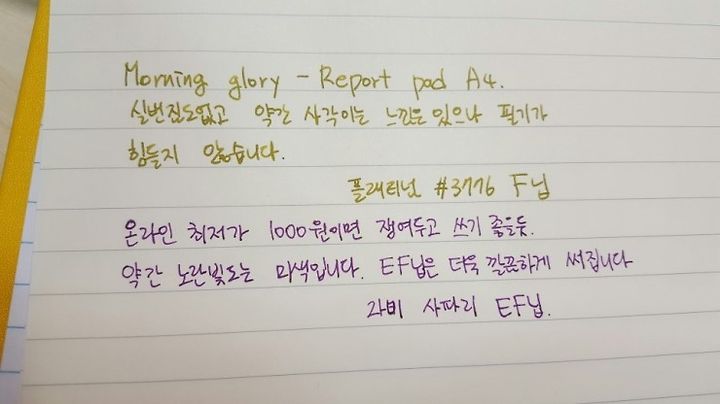 Morning glory - Report pad A4.
실번짐도없고 약간 사각이는 느낌은있으나 필기가
힘들지 않습니다.
플래티넘 #3776 F닙
온라인 최저가 1000원이면 쟁여두고 쓰기 좋을듯.
약간 노란빛도는 미색입니다. EF닙은 더욱 깔끔하게 써집니다
라미 사파리 EF닙.